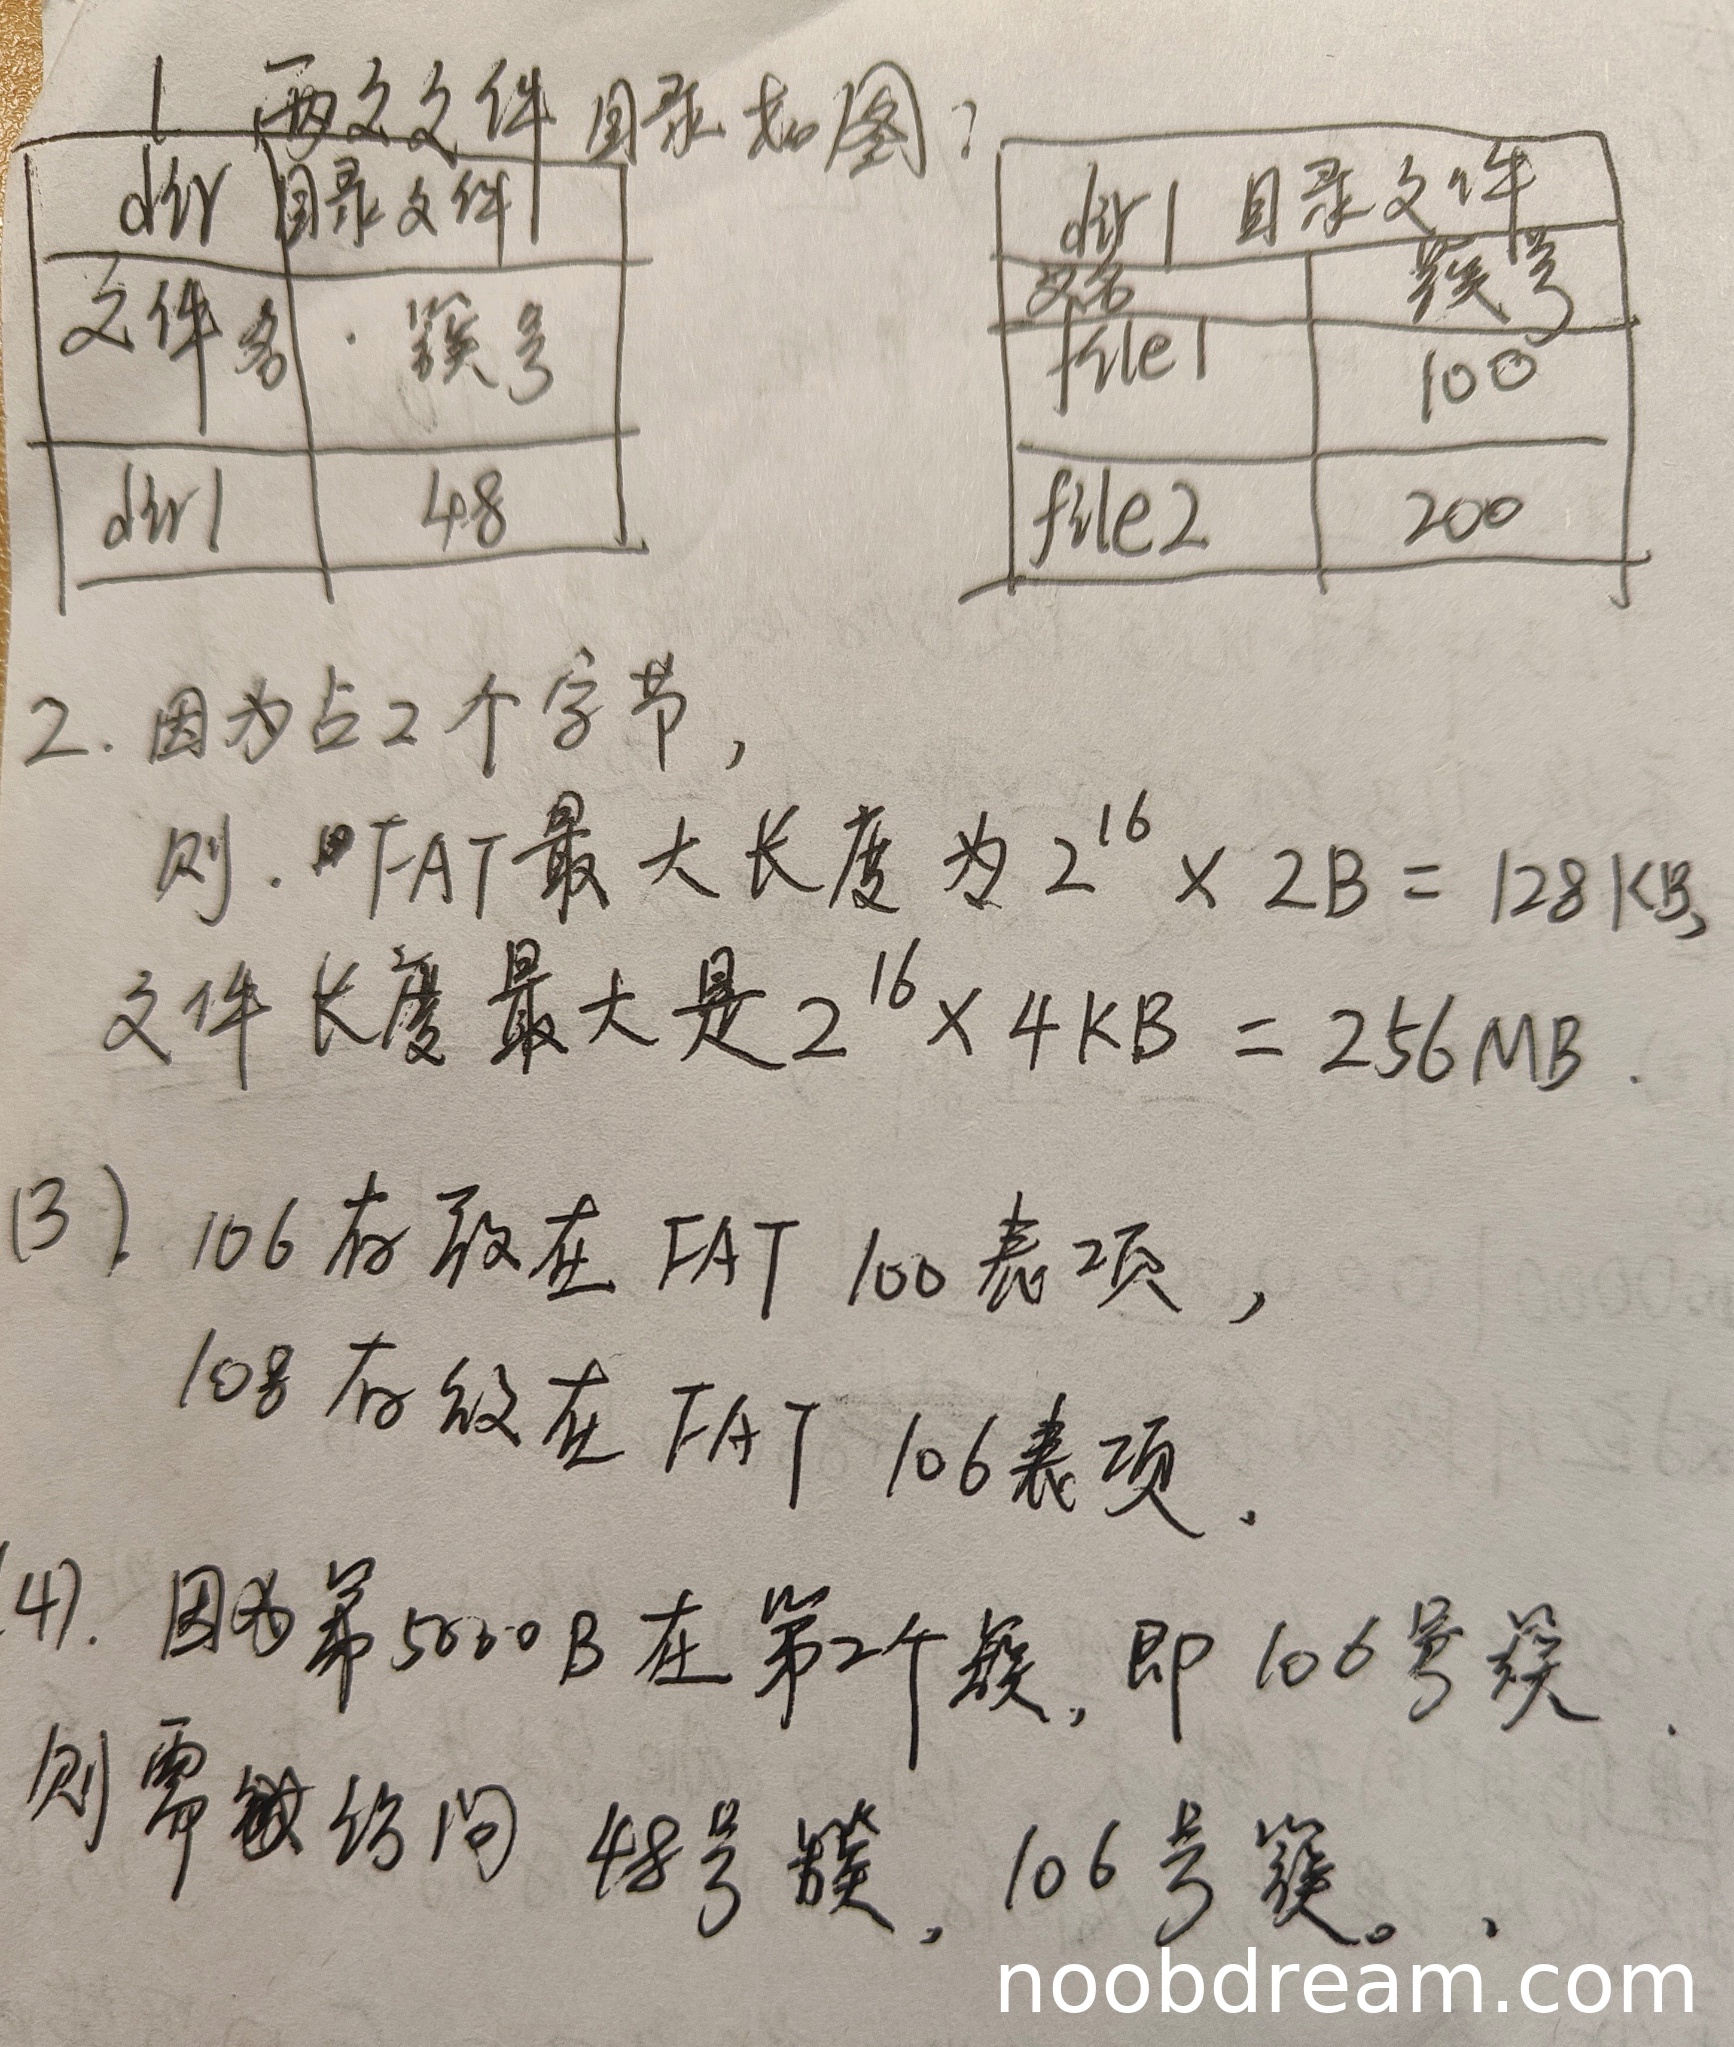 1 两文文件目录如图：
dir 目录文件
文件名 簇号
dir1 48
dir1 目录文件
文名 簇号
file1 100
file2 200
2. 因为占2个字节，
则. FAT最大长度为2^16 × 2B = 128KB,
文件长度最大是2^16 × 4KB = 256MB.
(3). 106存放在FAT 100表项，
108存放在FAT 106表项.
(4). 因为第5000B在第2个簇，即106号簇.
则需访问 48号簇，106号簇。
noobdream.com